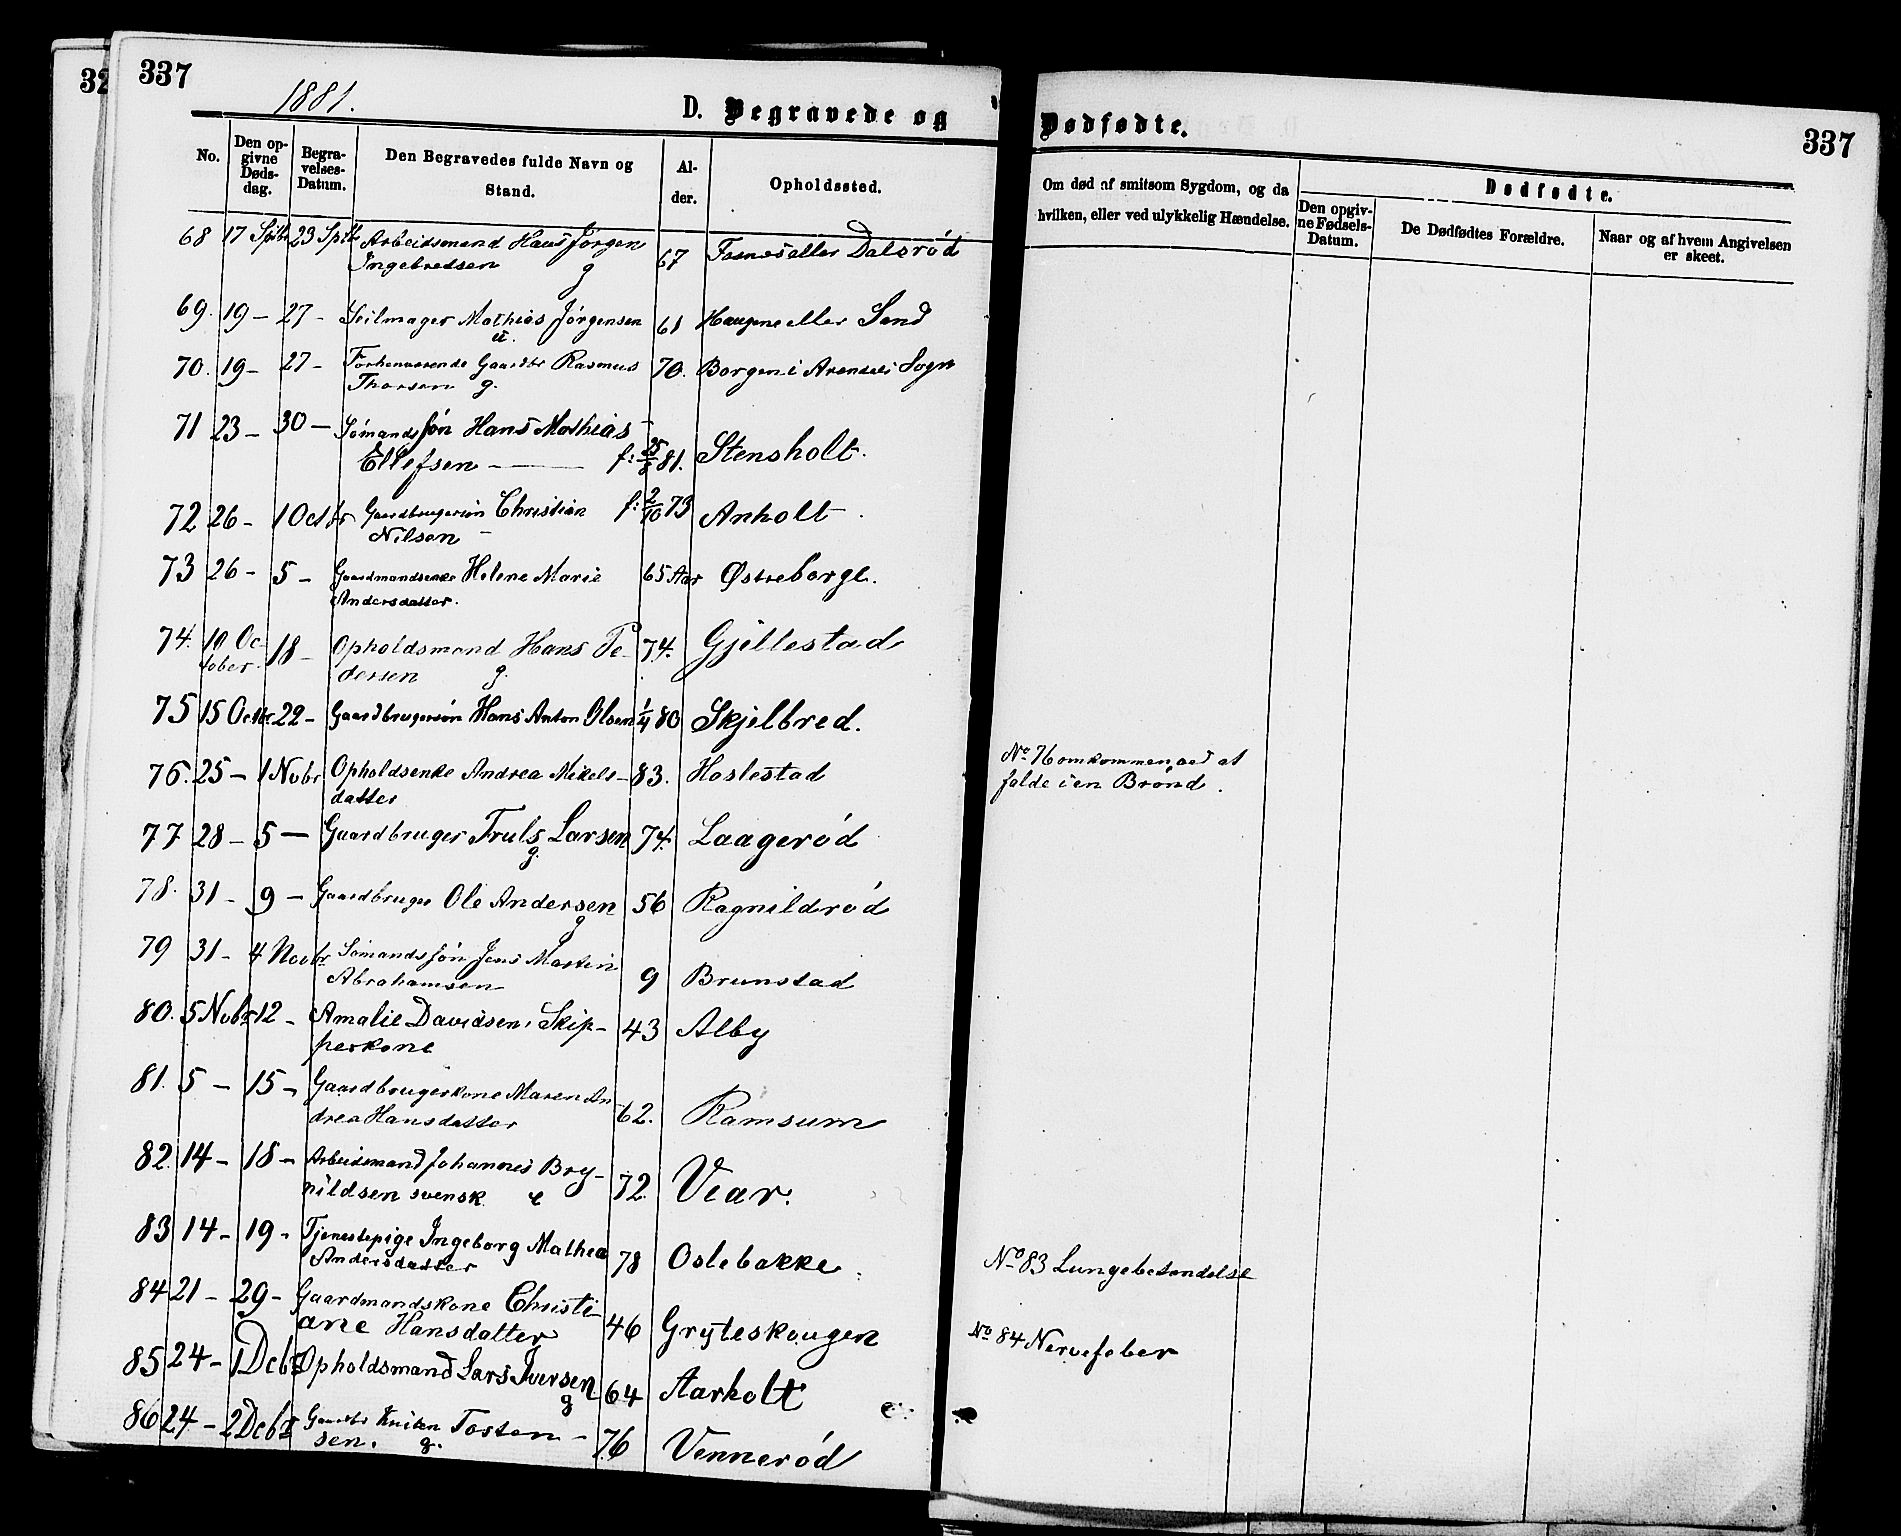 32
337
1881.
D. Begravede og
Dødfødte.
337
No.
Den opgivne Dødsdag.
Begravelses-Datum.
Den Begravedes fulde Navn og Stand.
Alder.
Opholdssted.
Om død af smitsom Sygdom, og da hvilken, eller ved ulykkelig Hændelse.
Dødfødte.
Den opgivne Fødsels-Datum.
De Dødfødtes Forældre.
Naar og af hvem Angivelsen er skeet.
68 17 Sptbr 23 Sptbr Arbeidsmand Hans Jørgen 67 eller Dalsrød
Ingebretsen g
69. 19 – 27 – Seilmager Mathias Jørgensen 61 Haugene eller Sand
70. 19 – 27 – Forhenværende Gaardbr Rasmus 70. Borgen i Arendals Sogn
Thorsen g.
71 23 – 30 – Sömands Søn Hans Mathias
Ellefsen – f: 25/8 81. Stensholt.
72 26 – 1 Octbr Gaardbrugersön Christian f: 2/10 73 Anholt
Nilsen –
73 26 – 5 – Gaardmandsenke Helene Marie 65 Aar Østreborge.
Andersdatter.
74. 10 Oc- 18 – Opholdsmand Hans Pe- 74. Gjellestad
tober. dersen g.
75 15 Octbr. 22 – Gaardbrugersön Hans Anton Olsen 1/4 80 Skjelbred.
76. 25 – 1 Nvbr Opholdsenke Andrea Mikels- 83. Haslestad
datter
No 76 omkommen ved at
falde i en Brønd.
77 28 – 5 – Gaardbruger Truls Larsen 74. Laagerød
g.
78. 31 – 9 – Gaardbruger Ole Andersen 56 Ragnildrød
g
79 31 – 4 Novbr Sömands Søn Jens Martin 9 Brunstad
Abrahamsen
80. 5 Nvbr 12 – Amalie Davidsen, Skip- 43 Alby
perkone
81. 5 – 15 – Gaardbrugerkone Maren An- 62. Ramsum
drea Hansdatter
82. 14 – 18 – Arbeidsmand Johannes Bry- 72. Vear.
nildsen svensk e
83 14 – 19 – Tjenestepige Ingeborg Mathea 78 Oslebakke
Andersdatter
No 83 Lungebetendelse
84 21 – 29 – Gaardmandskone Christi-
ane Hansdatter 46 Gryteskougen
No 84 Nervefeber
85 24 – 1 Dcbr Opholdsmand Lars Iversen 64 Aarholt
g
86 24 – 2 Dcbr Gaardbr Tosten- 76 Vennerød
sen. g.